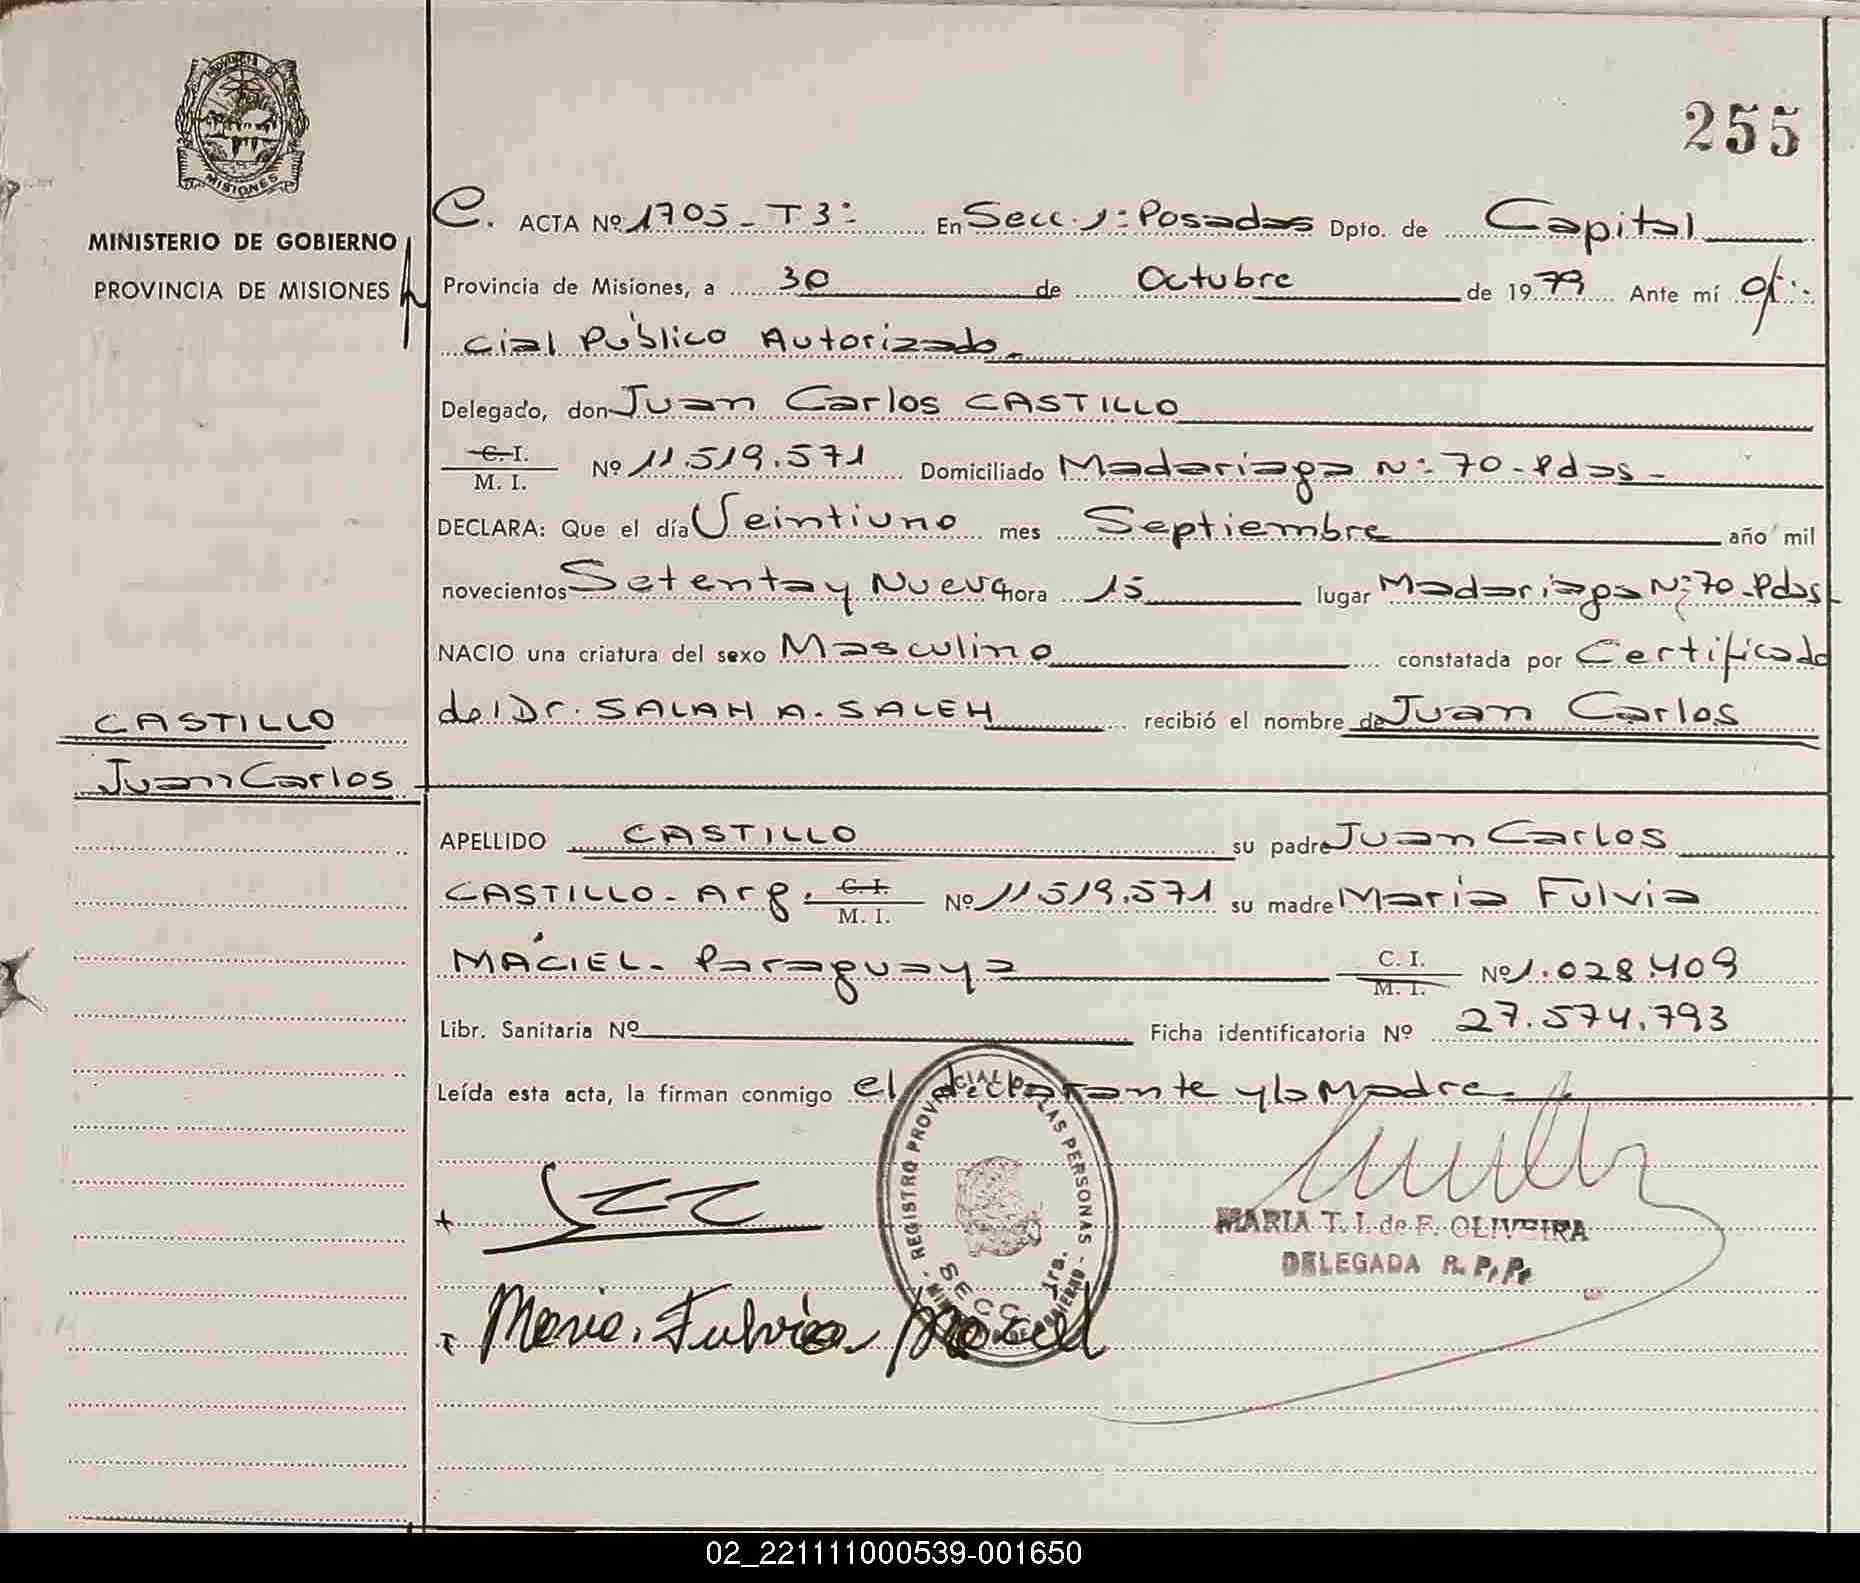 255
PROVINCIA DE
MISIONES
MINISTERIO DE GOBIERNO
PROVINCIA DE MISIONES
C. ACTA Nº 1705 - T 3º En Secc. 1º Posadas Dpto. de Capital
Provincia de Misiones, a 30 de Octubre de 19 79 Ante mí Ofi-
cial Público Autorizado
Delegado, don Juan Carlos CASTILLO
C. I.
M. I. Nº 11.519.571 Domiciliado Madariaga Nº 70 - Pdas -
DECLARA: Que el día Veintiuno mes Septiembre año mil
novecientos Setenta y Nueve hora 15 lugar Madariaga Nº 70 - Pdas
NACIO una criatura del sexo Masculino constatada por Certificado
del Dr. SALAH A. SALEH recibió el nombre de Juan Carlos
CASTILLO
Juan Carlos
APELLIDO CASTILLO su padre Juan Carlos
CASTILLO - Arg. C. I.
M. I. Nº 11.519.571 su madre María Fulvia
MÁCIEL - Paraguaya C. I.
M. I. Nº 1.028.409
Libr. Sanitaria Nº Ficha identificatoria Nº 27.574.793
Leída esta acta, la firman conmigo el declarante y la Madre.
REGISTRO PROVINCIAL DE LAS PERSONAS
SECC. 1ra.
MARIA T. I. de F. OLIVEIRA
DELEGADA R. P. P.
Maria Fulvia Maciel
02_221111000539-001650